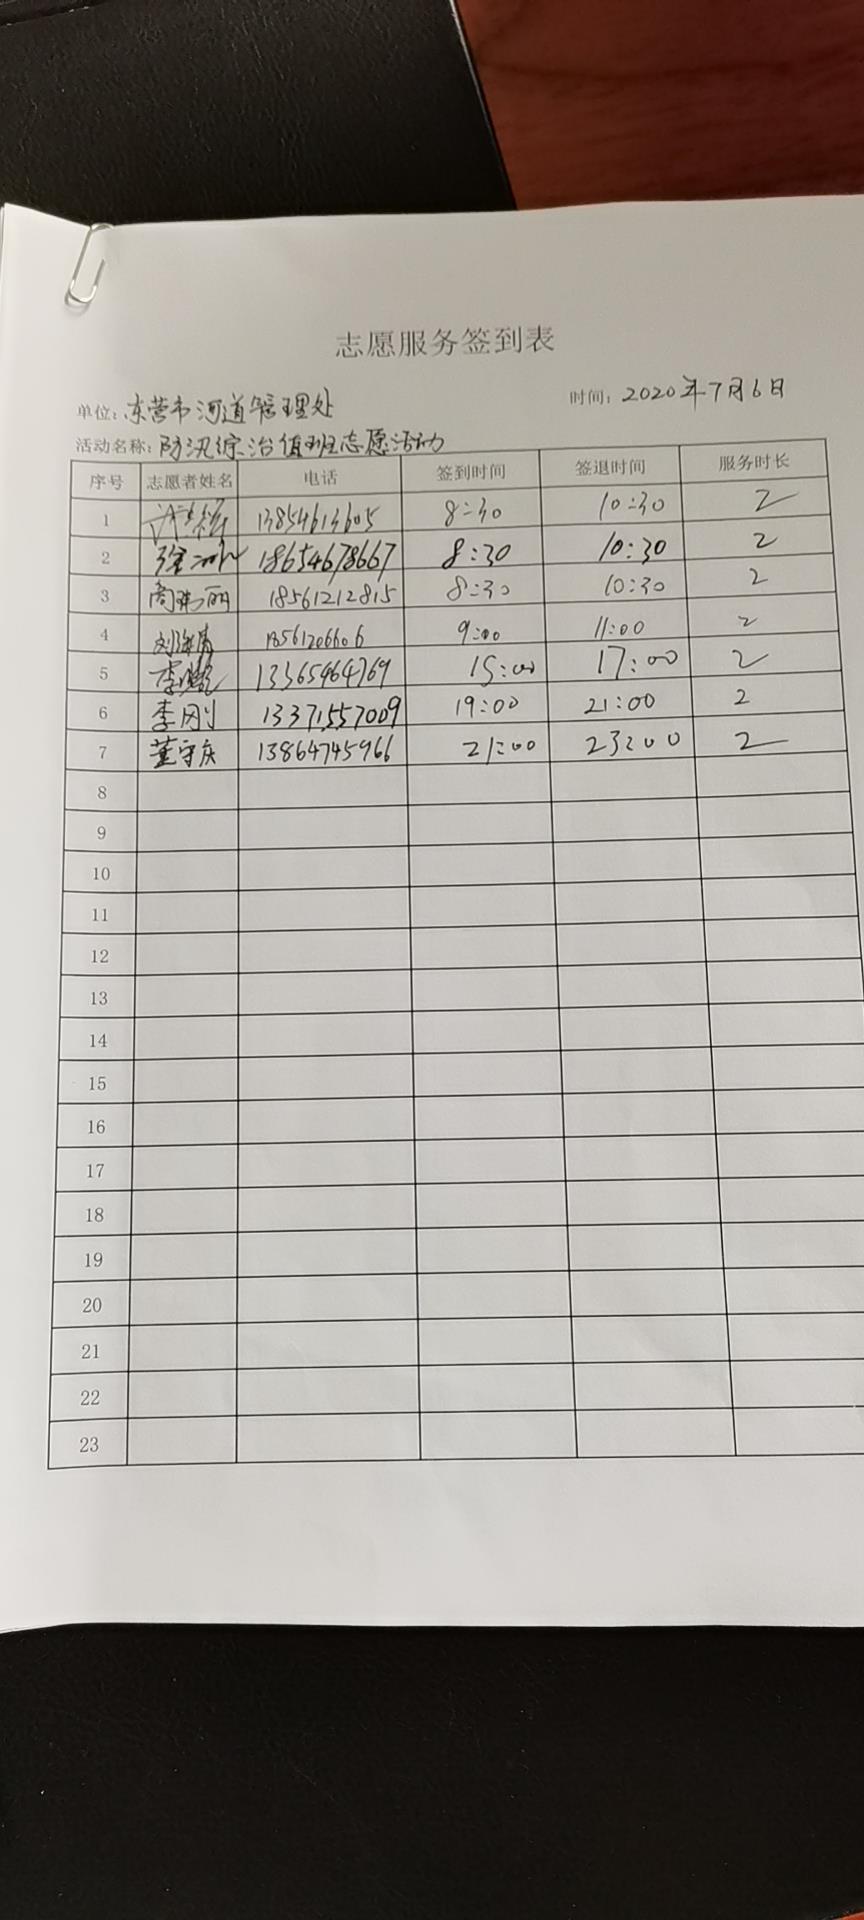 志愿服务签到表
单位：东营市河道管理处 时间：2020年7月6日
活动名称：防汛综治值班志愿活动
序号 志愿者姓名 电话 签到时间 签退时间 服务时长
1 13854613605 8:30 10:30 2
2 18654678667 8:30 10:30 2
3 周瑞丽 18561212815 8:30 10:30 2
4 18561206606 9:00 11:00 2
5 13365464769 15:00 17:00 2
6 李刚 13371557009 19:00 21:00 2
7 董守庆 13864745966 21:00 23:00 2
8
9
10
11
12
13
14
15
16
17
18
19
20
21
22
23